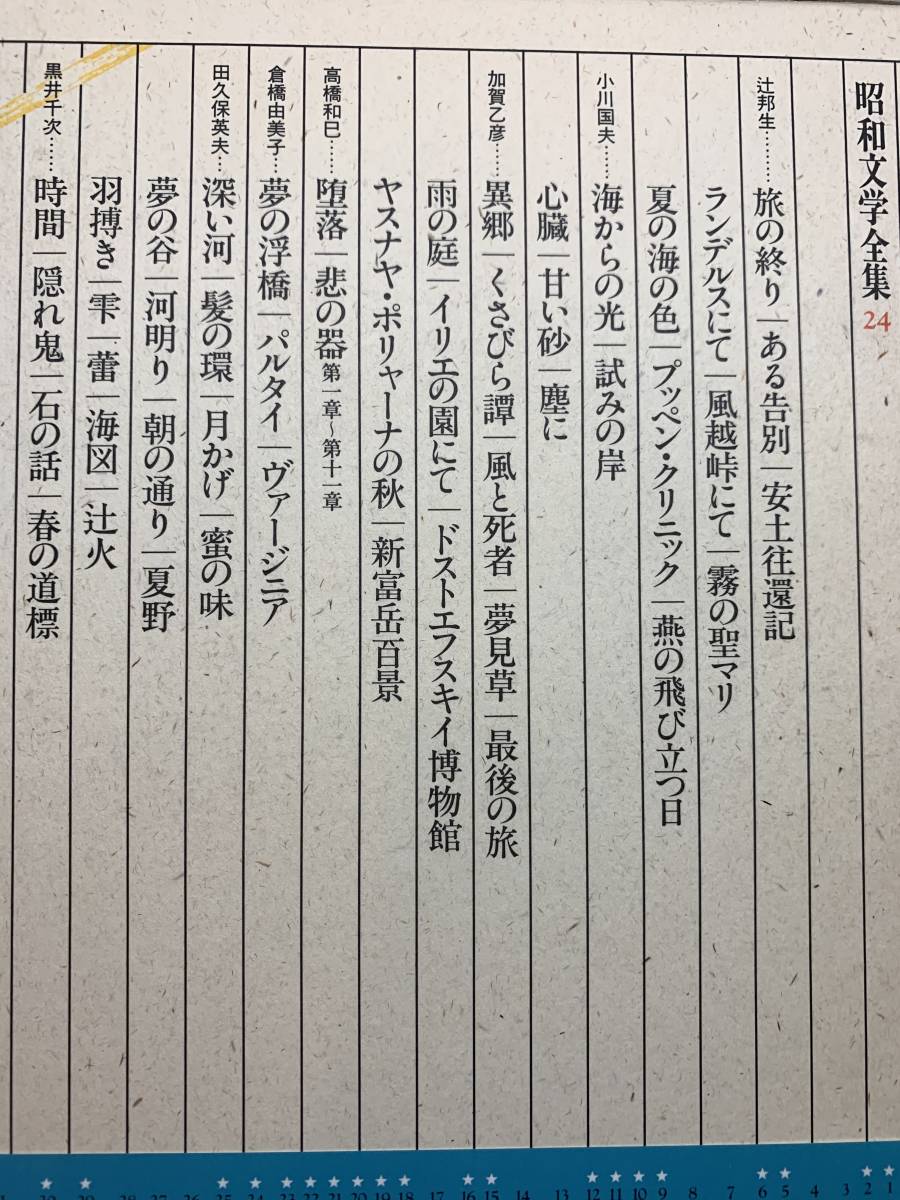 昭和文学全集 24
辻邦生………旅の終り｜ある告別｜安土往還記
ランデルスにて｜風越峠にて｜霧の聖マリ
夏の海の色｜プッペン・クリニック｜燕の飛び立つ日
小川国夫……海からの光｜試みの岸
心臓｜甘い砂｜塵に
加賀乙彦……異郷｜くさびら譚｜風と死者｜夢見草｜最後の旅
雨の庭｜イリエの園にて｜ドストエフスキイ博物館
ヤスナヤ・ポリャーナの秋｜新富岳百景
高橋和巳……堕落｜悲の器 第一章～第十一章
倉橋由美子…夢の浮橋｜パルタイ｜ヴァージニア
田久保英夫…深い河｜髪の環｜月かげ｜蜜の味
夢の谷｜河明り｜朝の通り｜夏野
羽搏き｜雫｜蕾｜海図｜辻火
黒井千次……時間｜隠れ鬼｜石の話｜春の道標